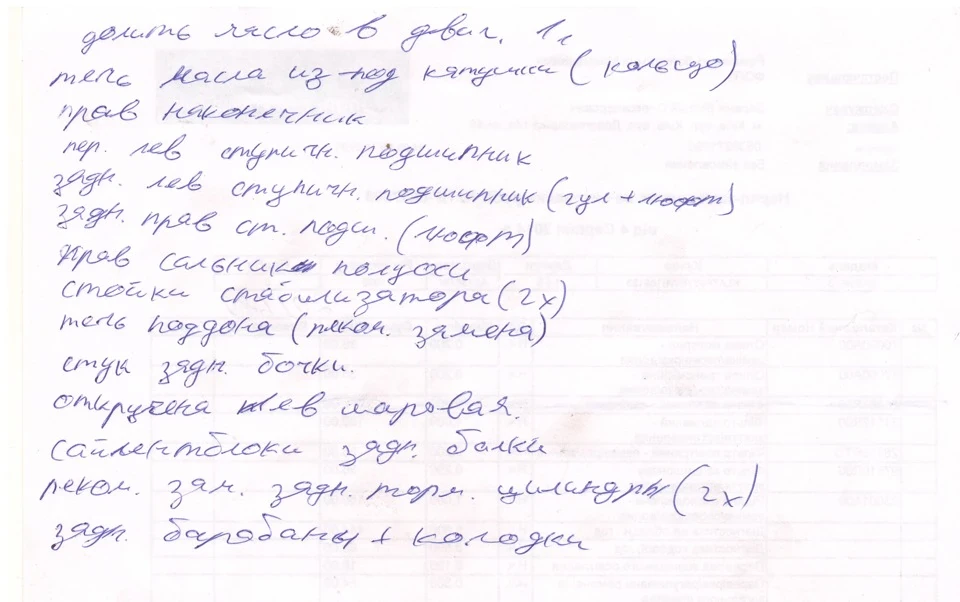 долить масло в двиг. 1л
течь масла из-под катушки (кольцо)
прав наконечник
пер. лев ступичн. подшипник
задн. лев ступичн. подшипник (гул + люфт)
задн. прав ст. подш. (люфт)
прав сальник полуоси
стойки стабилизатора (2x)
течь поддона (реком. замена)
стук задн. бочки.
откручена лев шаровая.
сайлентблоки задн. балки
реком. зам. задн. торм. цилиндры (2x)
задн. барабаны + колодки